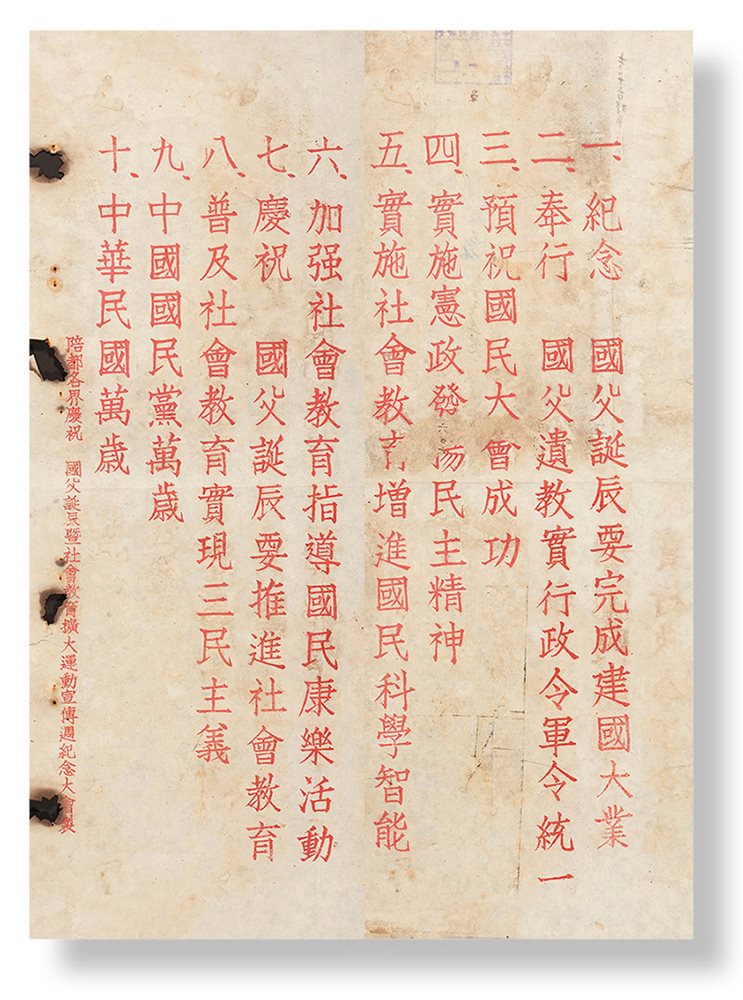 一、紀念　國父誕辰要完成建國大業
二、奉行　國父遺教實行政令軍令統一
三、預祝國民大會成功
四、實施憲政發揚民主精神
五、實施社會教育增進國民科學智能
六、加强社會教育指導國民康樂活動
七、慶祝　國父誕辰要推進社會教育
八、普及社會教育實現三民主義
九、中國國民黨萬歲
十、中華民國萬歲
陪都各界慶祝　國父誕辰暨社會教育擴大運動宣傳週紀念大會製